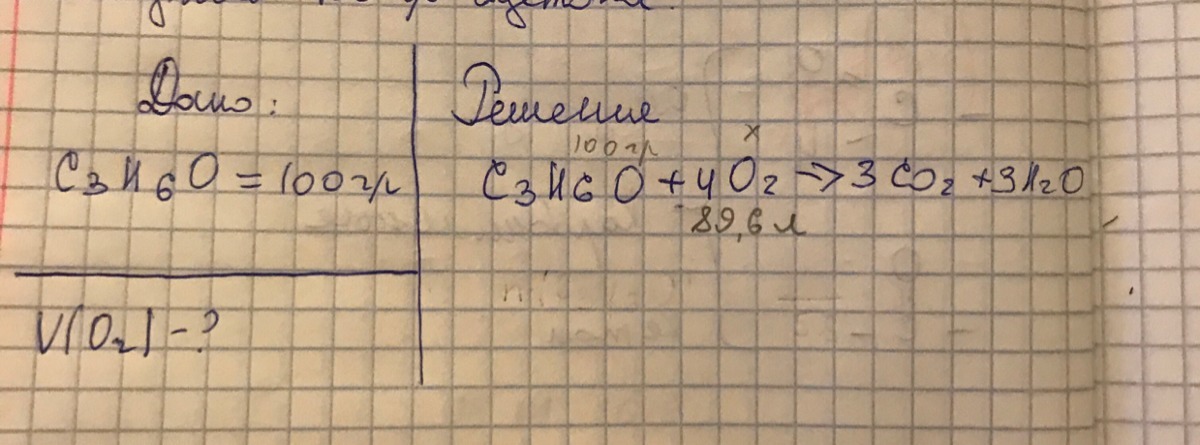 ацетона.
Дано:
C3H6O = 100гр
V(O2) - ?
Решение
100гр x
C3H6O + 4O2 → 3CO2 + 3H2O
89,6 л